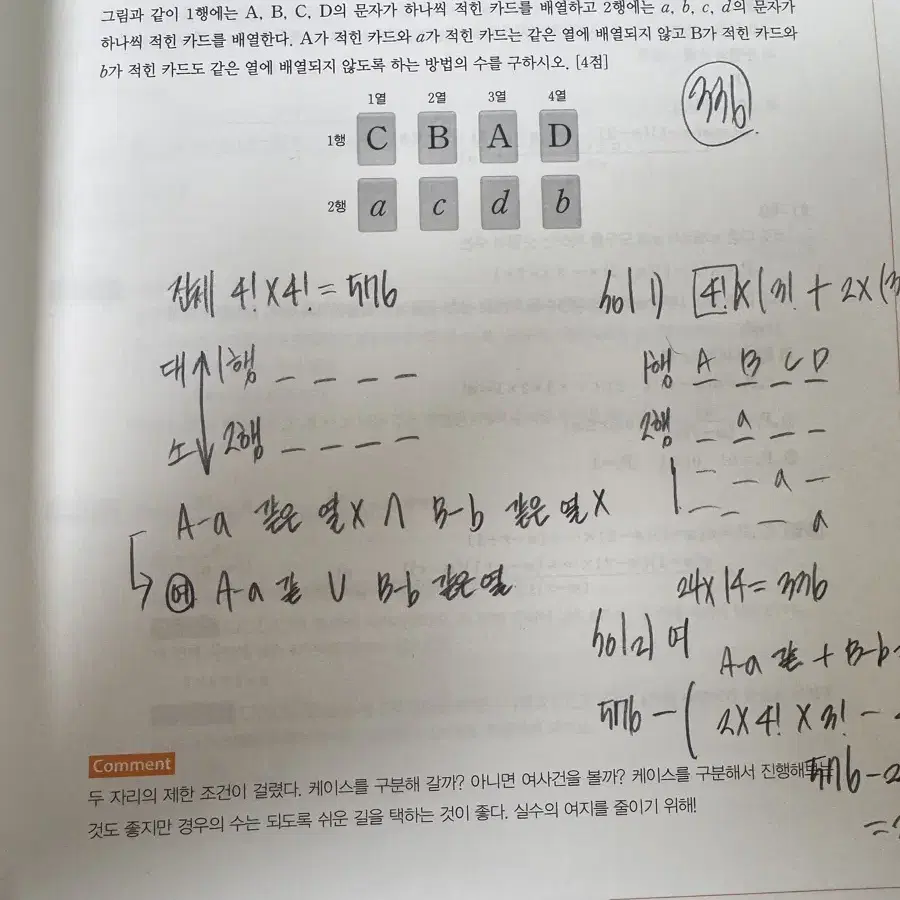 그림과 같이 1행에는 A, B, C, D의 문자가 하나씩 적힌 카드를 배열하고 2행에는 a, b, c, d의 문자가
하나씩 적힌 카드를 배열한다. A가 적힌 카드와 a가 적힌 카드는 같은 열에 배열되지 않고 B가 적힌 카드와
b가 적힌 카드도 같은 열에 배열되지 않도록 하는 방법의 수를 구하시오. [4점]
336
1열 2열 3열 4열
1행 C B A D
2행 a c d b
전체 4! × 4! = 576
대 1행
소 2행
A-a 같은 열 X ∧ B-b 같은 열 X
여 A-a 같 ∪ B-b 같은 열
sol 1) 4! × (3! + 2 × (3
1행 A B C D
2행 a
a
a
24 × 14 = 336
sol 2) 여
A-a 같 + B-b
576 - ( 2 × 4! × 3! -
576 - 2
=
Comment
두 자리의 제한 조건이 걸렸다. 케이스를 구분해 갈까? 아니면 여사건을 볼까? 케이스를 구분해서 진행해도
것도 좋지만 경우의 수는 되도록 쉬운 길을 택하는 것이 좋다. 실수의 여지를 줄이기 위해!